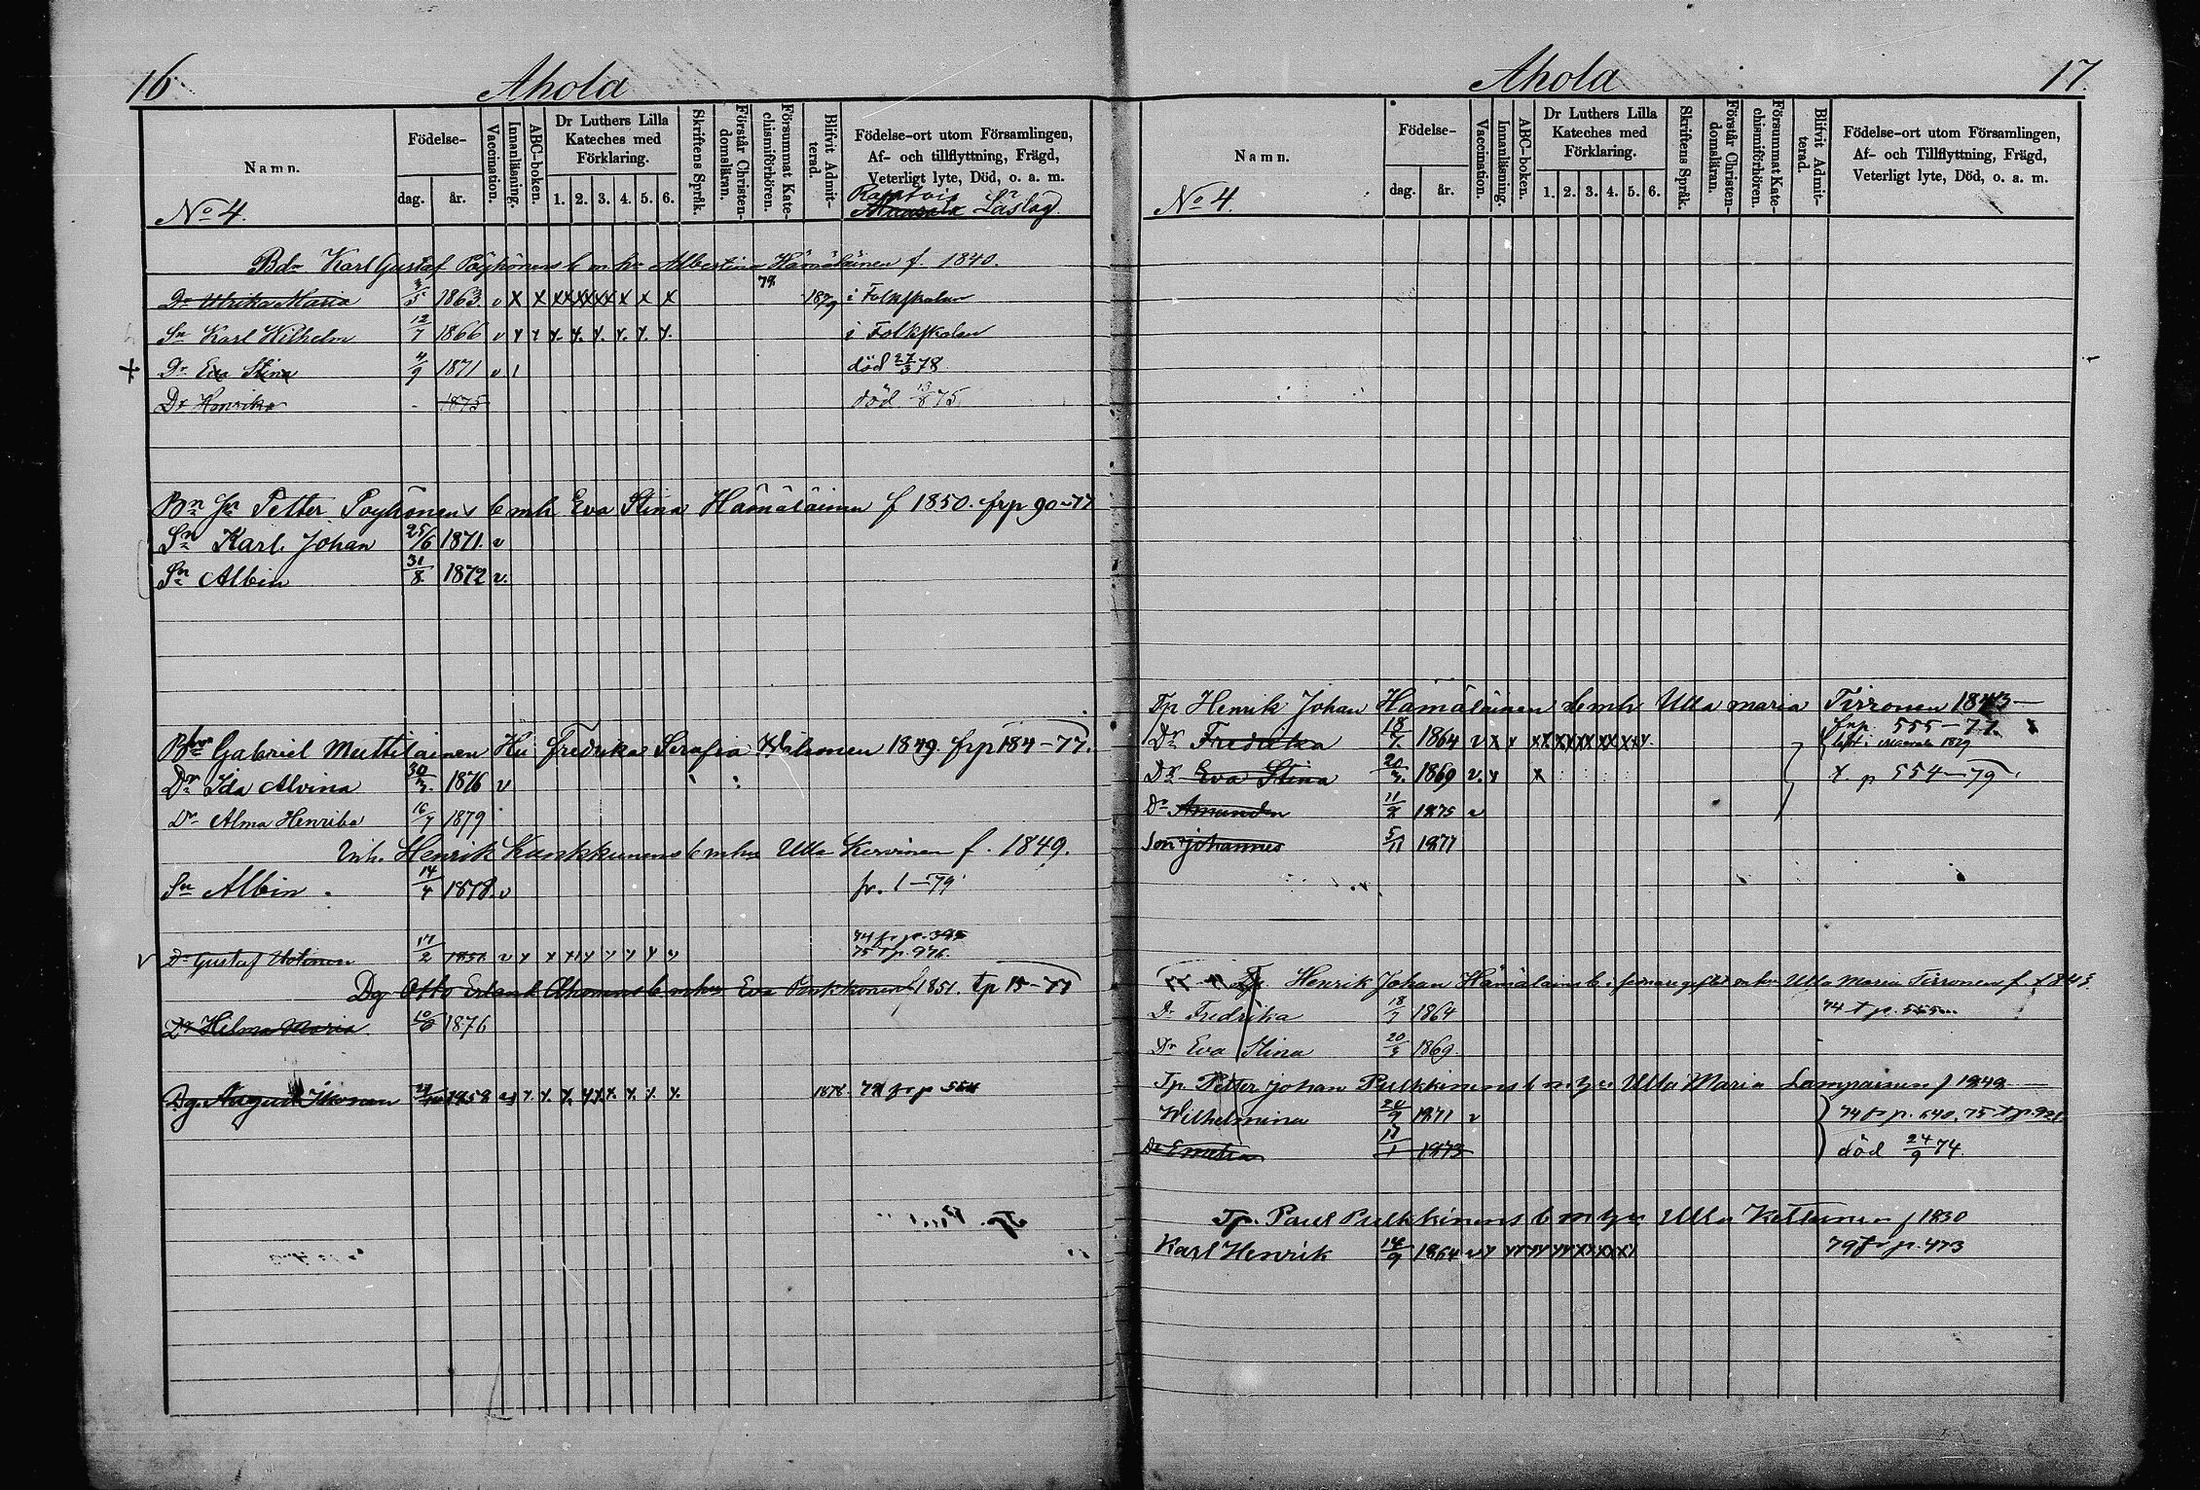 16. Ahola
Namn. Födelse- Vaccination. Innanläsning. ABC-boken. Dr Luthers Lilla Kateches med Förklaring. Skriftens Språk. Förstår Christendomsläran. Försummat Katechismiförhören. Blifvit Admitterad. Födelse-ort utom Församlingen, Af- och tillflyttning, Frägd, Veterligt lyte, Död, o. a. m.
dag. år. 1. 2. 3. 4. 5. 6.
No 4. Läslag.
Bdn Karl Gustaf Pöyhönens b m hu Albertina Hämäläinen f. 1840.
Dr Ulrika Maria 3/5 1863 v x x xx xx xx x x x 78 1879 i Folkskolan
Sn Karl Wilhelm 12/7 1866 v i Folkskolan
+ Dr Eva Stina 4/9 1871 v 1 död 27/3 78
Dr Henrika 1875 död 75
Petter Pöyhönens b mh Eva Stina Hämäläinen f 1850. frp 90-77
Sn Karl Johan 25/6 1871. v
Sn Albin 31/8 1872 v.
Gabriel Muttilainen Hu Fredrika Serafia 1849. frp 184-77.
Dr Ida Alvina 30/3. 1876 v
Dr Alma Henrika 16/7 1879
Inh. Henrik Kankkunens b m hu Ulla Kervinen f. 1849.
Sn Albin 14/4 1878. v fr. 1-79
v Gustaf 17/2 74 fr p. 75 t p. 976.
Dg Otto Erland Ahonens b m hu Eva Parkkonen f 1851. tp 15-77
Dr Helma Maria 10/6 1876
Dg August Ikonen 1858 1878. frp 554
Ahola 17.
Namn. Födelse- Vaccination. Innanläsning. ABC-boken. Dr Luthers Lilla Kateches med Förklaring. Skriftens Språk. Förstår Christendomsläran. Försummat Katechismiförhören. Blifvit Admitterad. Födelse-ort utom Församlingen, Af- och Tillflyttning, Frägd, Veterligt lyte, Död, o. a. m.
dag. år. 1. 2. 3. 4. 5. 6.
No 4.
Tp Henrik Johan Hämäläinen b mh Ulla Maria Tirronen 1843
Dr Fredrika 18/7 1864 v frp. 555-77.
Dr Eva Stina 20/3. 1869 v. x x p 554-79.
Dr Amanda 11/8 1875 v
Son Johannes 5/11 1877
Henrik Johan Hämäläins b i förra gifte m hu Ulla Maria Tirronen f. 1843
Dr Fredrika 18/7 1864 74 t p. 555
Dr Eva Stina 20/3 1869.
Tp Petter Johan Pulkkinens b m hu Ulla Maria Lampainen f 1848
Wilhelmina 20/9 1871 v 74 fr p. 640. 75 t p. 921.
Dr Emelia 17/1 1873 död 24/9 74.
Tp. Paul Pulkkinens b m hu Ulla Kettunen f 1830
Karl Henrik 14/9 1864 79 fr p. 473